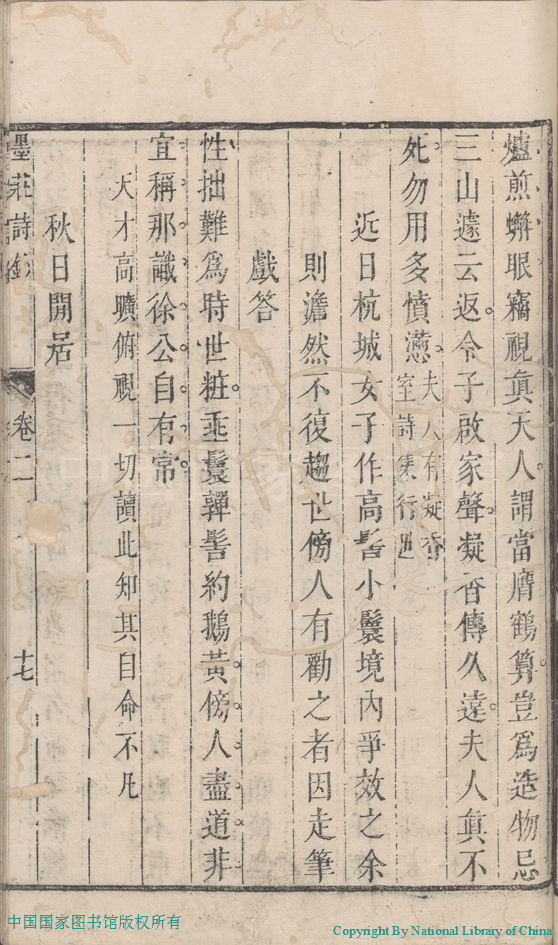 爐煎蠏眼竊視真天人謂當膺鶴算豈為造物忌
三山遽云返令子啟家聲凝香傳久遠夫人真不
死勿用多憤懣夫人有凝香
室詩集行世
近日杭城女子作高髻小鬟境內爭效之余
則澹然不復趨世傍人有勸之者因走筆
戲答
性拙難為時世粧垂鬟嚲髻約鵝黃傍人盡道非
宜稱那識徐公自有常
天才高曠俯視一切讀此知其自命不凡
秋日閒居
墨莊詩鈔 卷二 十七
中国国家图书馆版权所有
Copyright By National Library of China